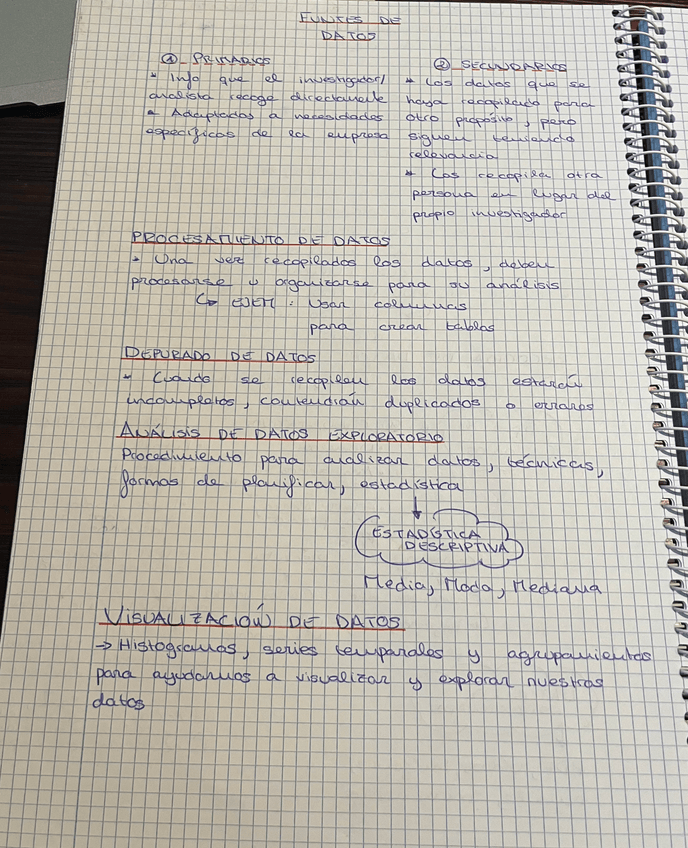 FUNTES DE
DATOS
① - PRIMARIOS
* Info que el investigador/
analista recoge directamente
* Adaptados a necesidades
específicas de la empresa
② SECUNDARIOS
* Los datos que se
haya recopilado para
otro proposito, pero
siguen teniendo
relevancia
* Los recopila otra
persona en lugar del
propio investigador
PROCESAMIENTO DE DATOS
* Una vez recopilados los datos, deben
procesarse y organizarse para su análisis
↳ EJEM: Usar columnas
para crear tablas
DEPURADO DE DATOS
* Cuando se recopilen los datos estarán
incompletos, contendrán duplicados o errores
ANÁLISIS DE DATOS EXPLORATORIO
Procedimiento para analizar datos, técnicas,
formas de planificar, estadística
↓
ESTADÍSTICA
DESCRIPTIVA
Media, Moda, Mediana
VISUALIZACIÓN DE DATOS
→ Histogramas, series temporales y agrupamientos
para ayudarnos a visualizar y explorar nuestros
datos